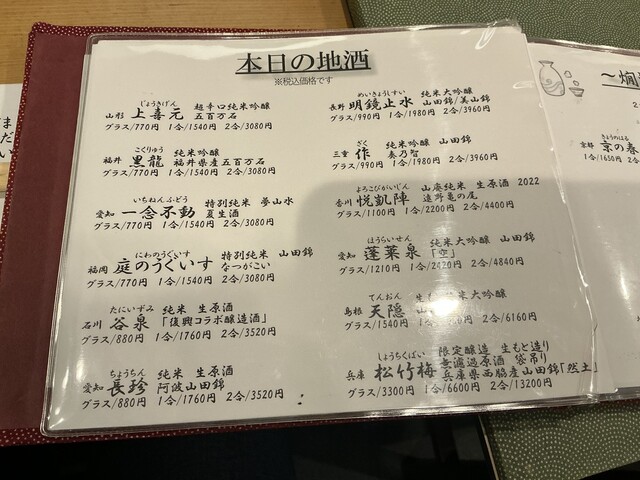 本日の地酒
※税込価格です
じょうきげん
山形 上喜元 超辛口純米吟醸 五百万石
グラス/770円 1合/1540円 2合/3080円
こくりゅう
福井 黒龍 純米吟醸 福井県産五百万石
グラス/770円 1合/1540円 2合/3080円
いちねんふどう
愛知 一念不動 特別純米 夢山水 夏生酒
グラス/770円 1合/1540円 2合/3080円
にわのうぐいす
福岡 庭のうぐいす 特別純米 山田錦 なつがこい
グラス/770円 1合/1540円 2合/3080円
たにいずみ
石川 谷泉 純米 生原酒 「復興コラボ醸造酒」
グラス/880円 1合/1760円 2合/3520円
ちょうちん
愛知 長珍 純米 生原酒 阿波山田錦
グラス/880円 1合/1760円 2合/3520円
めいきょうしすい
長野 明鏡止水 純米大吟醸 山田錦/美山錦
グラス/990円 1合/1980円 2合/3960円
ざく
三重 作 純米吟醸 山田錦 奏乃智
グラス/990円 1合/1980円 2合/3960円
よろこびがいじん
香川 悦凱陣 山廃純米 生原酒 2022 遠野亀の尾
グラス/1100円 1合/2200円 2合/4400円
ほうらいせん
愛知 蓬莱泉 純米大吟醸 山田錦 「空」
グラス/1210円 1合/2420円 2合/4840円
てんおん
島根 天隠 大吟醸
グラス/1540円 2合/6160円
しょうちくばい
兵庫 松竹梅 限定醸造 生もと造り
無濾過原酒 袋吊り
兵庫県西脇産山田錦「然土」
グラス/3300円 1合/6600円 2合/13200円
～燗
きょうのはる
京都 京の春
1合/1650円